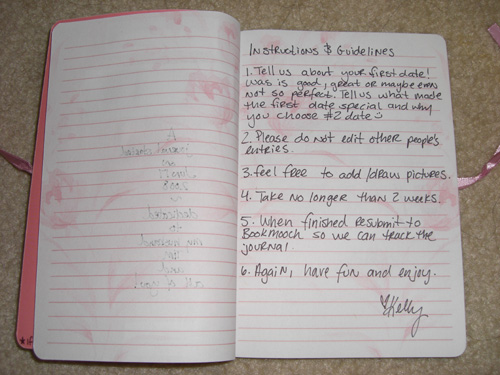 Instructions & Guidelines
1. Tell us about your first date!
Was is good, great or maybe even
not so perfect. Tell us what made
the first date special and why
you choose #2 date☺
2. Please do not edit other people's
entries.
3. feel free to add/draw pictures.
4. Take no longer than 2 weeks.
5. When finished resubmit to
Bookmooch so we can track the
journal.
6. Again, have fun and enjoy.
Kelly